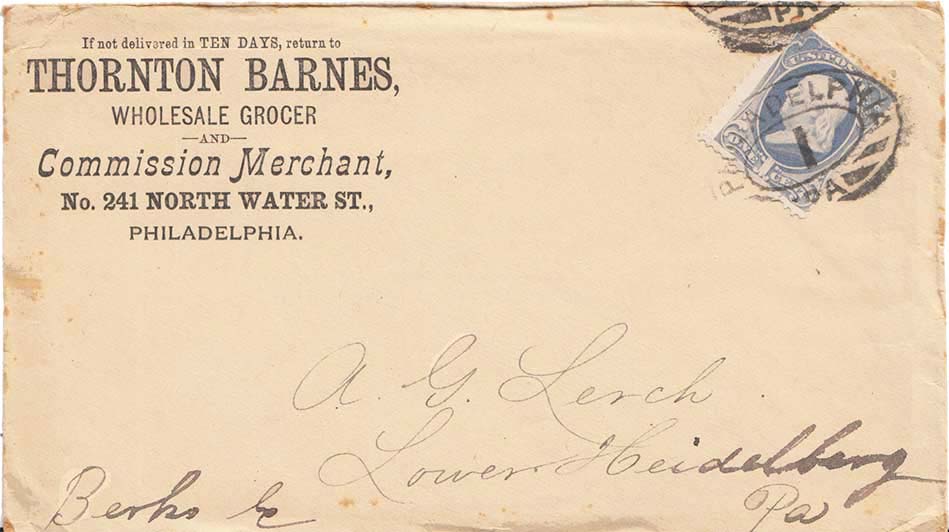 If not delivered in TEN DAYS, return to
THORNTON BARNES,
WHOLESALE GROCER
—AND—
Commission Merchant,
No. 241 NORTH WATER ST.,
PHILADELPHIA.
PA
DELPHIA
1
PA
ONE
A. G. Lerch
Lower Heidelberg
Berks Co
Pa